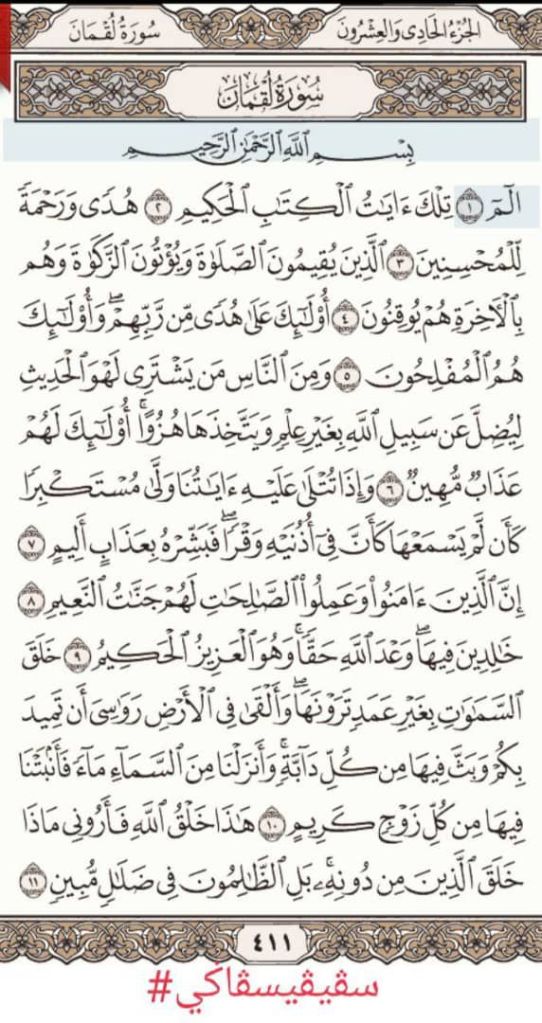 الجُزْءُ الحَادِى وَالعِشْرُونَ
سُورَةُ لُقْمَانَ
سُورَةُ لُقْمَانَ
بِسْمِ ٱللَّهِ ٱلرَّحْمَٰنِ ٱلرَّحِيمِ
الٓمٓ ١ تِلْكَ ءَايَٰتُ ٱلْكِتَٰبِ ٱلْحَكِيمِ ٢ هُدًى وَرَحْمَةً
لِّلْمُحْسِنِينَ ٣ ٱلَّذِينَ يُقِيمُونَ ٱلصَّلَوٰةَ وَيُؤْتُونَ ٱلزَّكَوٰةَ وَهُم
بِٱلْأٓخِرَةِ هُمْ يُوقِنُونَ ٤ أُوْلَٰٓئِكَ عَلَىٰ هُدًى مِّن رَّبِّهِمْۖ وَأُوْلَٰٓئِكَ
هُمُ ٱلْمُفْلِحُونَ ٥ وَمِنَ ٱلنَّاسِ مَن يَشْتَرِى لَهْوَ ٱلْحَدِيثِ
لِيُضِلَّ عَن سَبِيلِ ٱللَّهِ بِغَيْرِ عِلْمٍ وَيَتَّخِذَهَا هُزُوًاۚ أُوْلَٰٓئِكَ لَهُمْ
عَذَابٌ مُّهِينٌ ٦ وَإِذَا تُتْلَىٰ عَلَيْهِ ءَايَٰتُنَا وَلَّىٰ مُسْتَكْبِرًا
كَأَن لَّمْ يَسْمَعْهَا كَأَنَّ فِىٓ أُذُنَيْهِ وَقْرًاۖ فَبَشِّرْهُ بِعَذَابٍ أَلِيمٍ ٧
إِنَّ ٱلَّذِينَ ءَامَنُواْ وَعَمِلُواْ ٱلصَّٰلِحَٰتِ لَهُمْ جَنَّٰتُ ٱلنَّعِيمِ ٨
خَٰلِدِينَ فِيهَاۖ وَعْدَ ٱللَّهِ حَقًّاۚ وَهُوَ ٱلْعَزِيزُ ٱلْحَكِيمُ ٩ خَلَقَ
ٱلسَّمَٰوَٰتِ بِغَيْرِ عَمَدٍ تَرَوْنَهَاۖ وَأَلْقَىٰ فِى ٱلْأَرْضِ رَوَٰسِىَ أَن تَمِيدَ
بِكُمْ وَبَثَّ فِيهَا مِن كُلِّ دَآبَّةٍۚ وَأَنزَلْنَا مِنَ ٱلسَّمَآءِ مَآءً فَأَنۢبَتْنَا
فِيهَا مِن كُلِّ زَوْجٍ كَرِيمٍ ١٠ هَٰذَا خَلْقُ ٱللَّهِ فَأَرُونِى مَاذَا
خَلَقَ ٱلَّذِينَ مِن دُونِهِۦۚ بَلِ ٱلظَّٰلِمُونَ فِى ضَلَٰلٍ مُّبِينٍ ١١
٤١١
#سڤيڤيسڤاكي